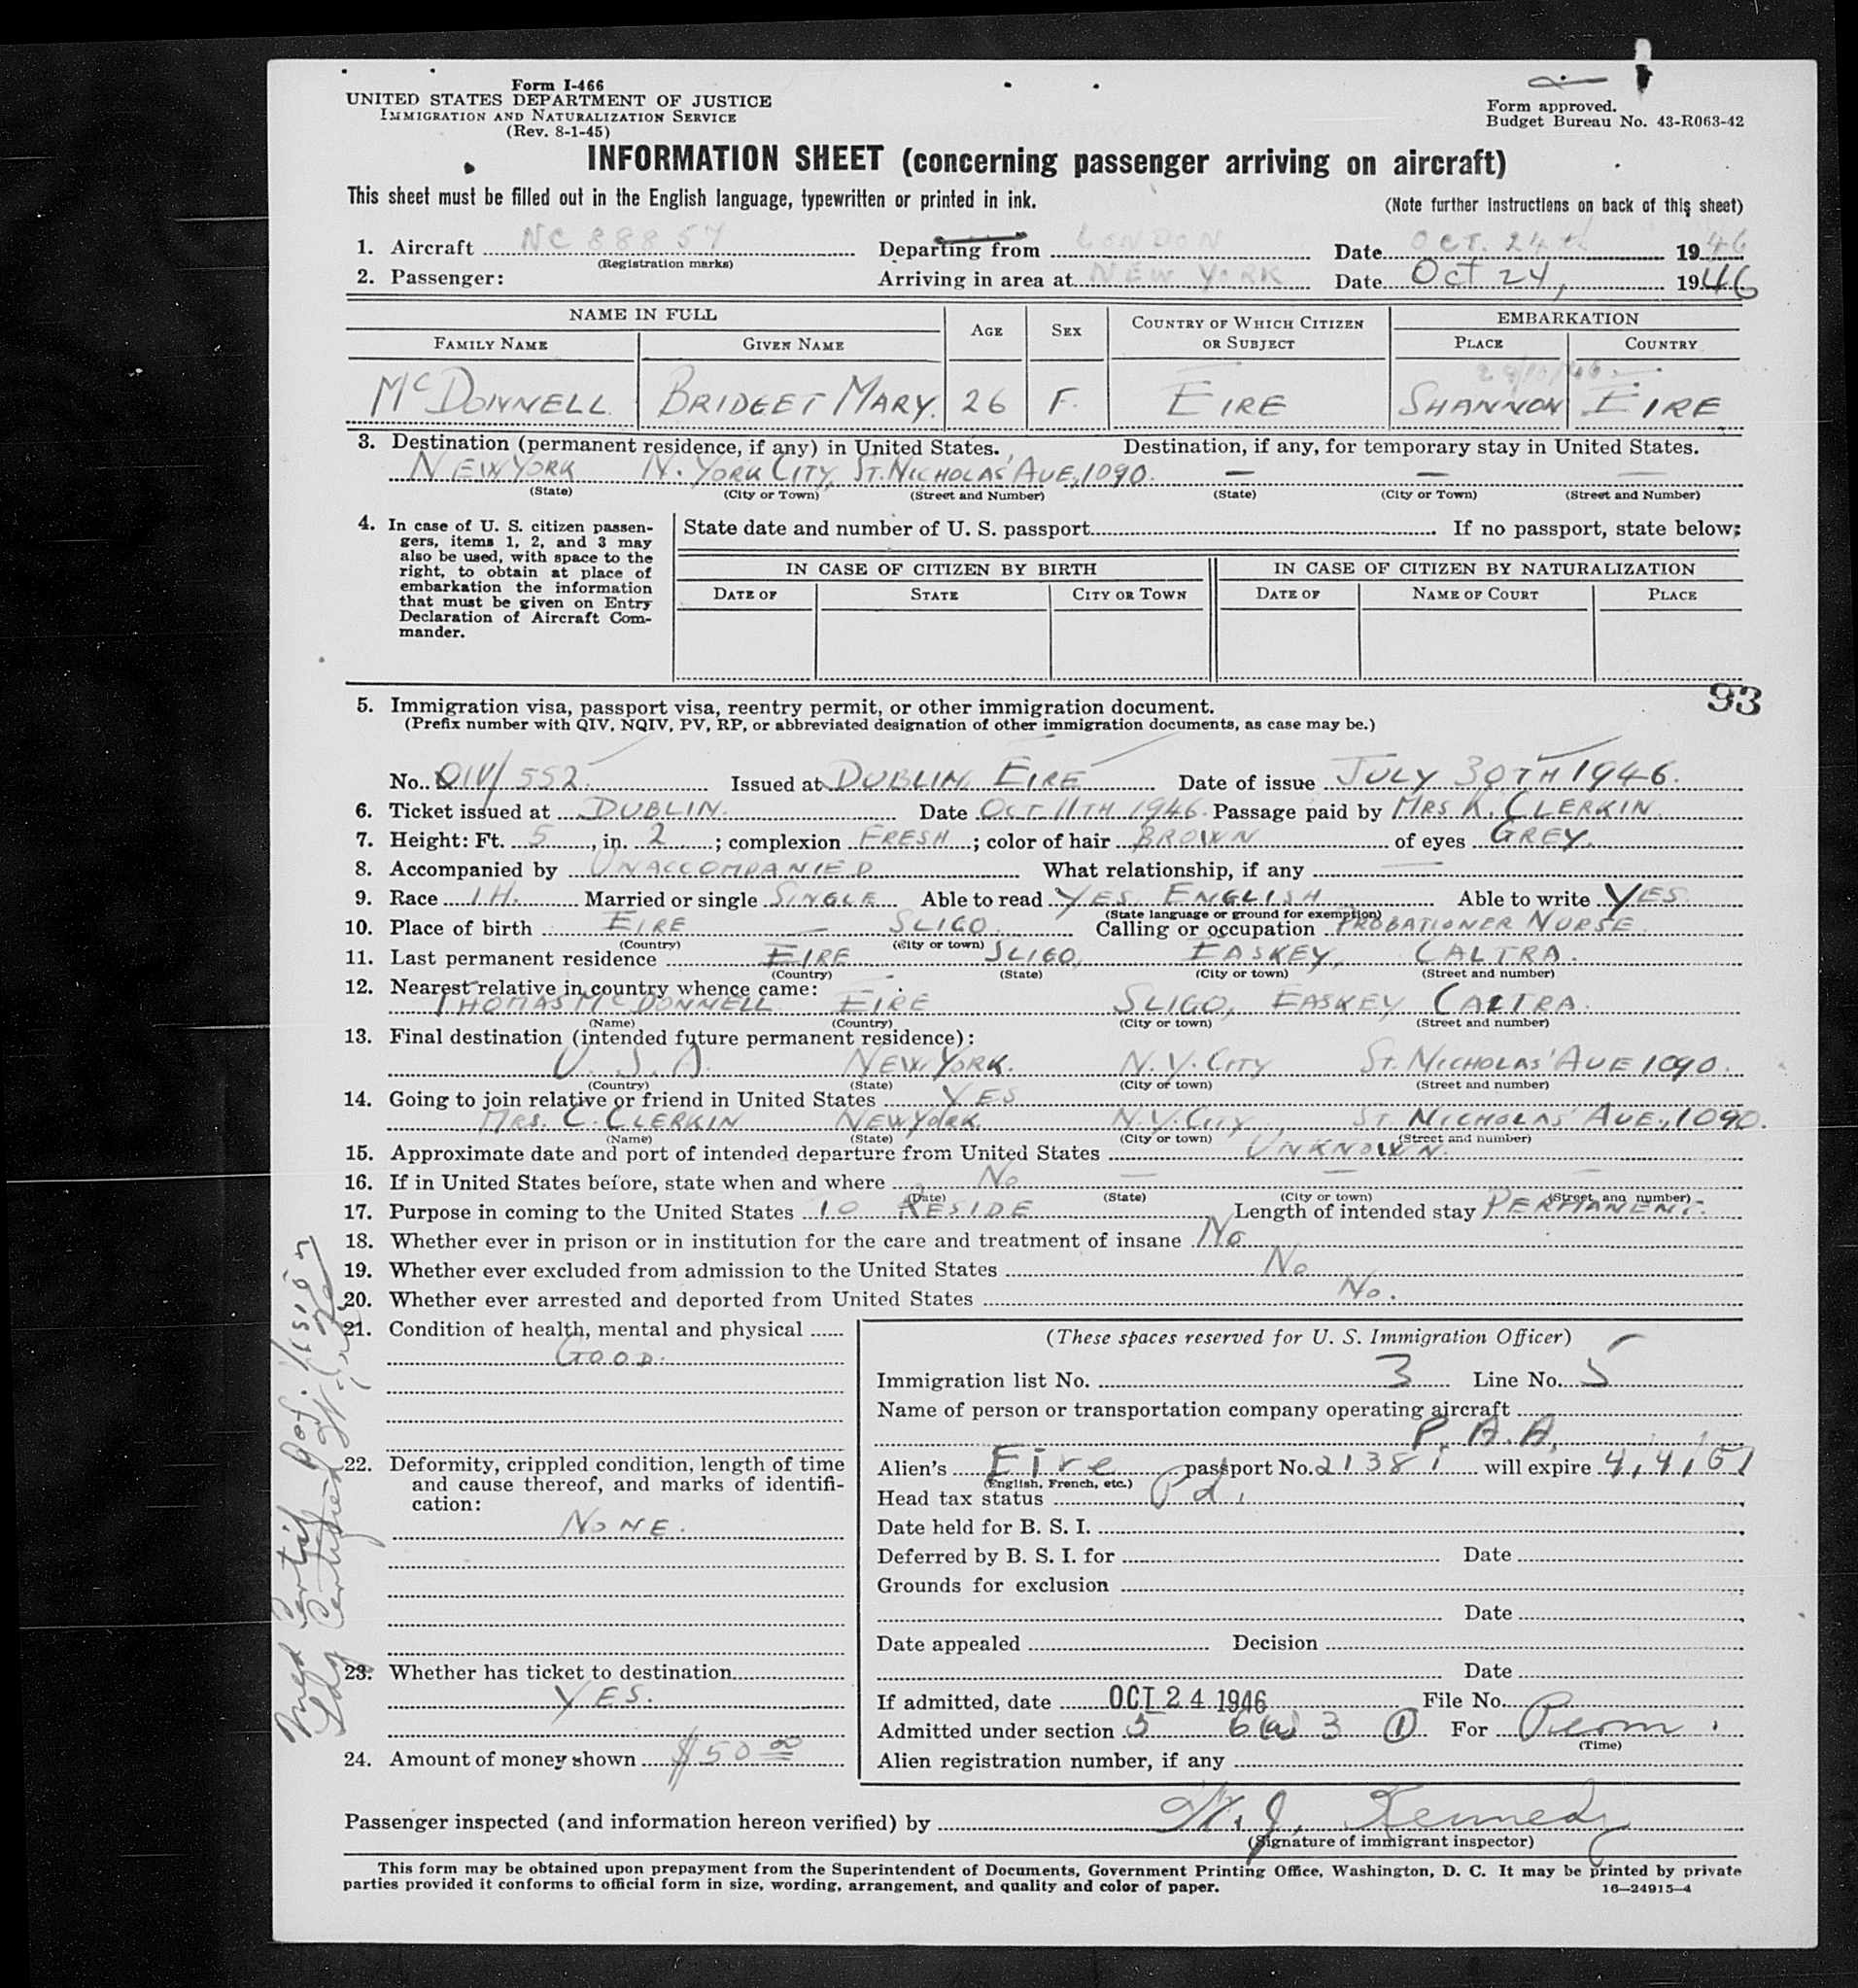 Form I-466
UNITED STATES DEPARTMENT OF JUSTICE
IMMIGRATION AND NATURALIZATION SERVICE
(Rev. 8-1-45)
Form approved.
Budget Bureau No. 43-R063-42
INFORMATION SHEET (concerning passenger arriving on aircraft)
This sheet must be filled out in the English language, typewritten or printed in ink.
(Note further instructions on back of this sheet)
1. Aircraft NC 88857 Departing from LONDON Date OCT. 24th 1946
(Registration marks)
2. Passenger: Arriving in area at NEW YORK Date OCT 24, 1946
NAME IN FULL AGE SEX COUNTRY OF WHICH CITIZEN OR SUBJECT EMBARKATION
FAMILY NAME GIVEN NAME PLACE COUNTRY
McDONNELL BRIDGET MARY. 26 F. EIRE SHANNON EIRE
3. Destination (permanent residence, if any) in United States. Destination, if any, for temporary stay in United States.
NEW YORK N. YORK CITY, ST. NICHOLAS' AVE, 1090. — — —
(State) (City or Town) (Street and Number) (State) (City or Town) (Street and Number)
4. In case of U. S. citizen passen-
gers, items 1, 2, and 3 may
also be used, with space to the
right, to obtain at place of
embarkation the information
that must be given on Entry
Declaration of Aircraft Com-
mander.
State date and number of U. S. passport If no passport, state below:
IN CASE OF CITIZEN BY BIRTH IN CASE OF CITIZEN BY NATURALIZATION
DATE OF STATE CITY OR TOWN DATE OF NAME OF COURT PLACE
93
5. Immigration visa, passport visa, reentry permit, or other immigration document.
(Prefix number with QIV, NQIV, PV, RP, or abbreviated designation of other immigration documents, as case may be.)
No. QIV/552 Issued at DUBLIN, EIRE Date of issue JULY 30TH 1946.
6. Ticket issued at DUBLIN. Date OCT 11TH 1946. Passage paid by MRS K. CLERKIN.
7. Height: Ft. 5, in. 2; complexion FRESH; color of hair BROWN of eyes GREY.
8. Accompanied by UNACCOMPANIED What relationship, if any —
9. Race IH. Married or single SINGLE Able to read YES. ENGLISH Able to write YES
(State language or ground for exemption)
10. Place of birth EIRE — SLIGO. Calling or occupation PROBATIONER NURSE.
(Country) (City or town)
11. Last permanent residence EIRE SLIGO, EASKEY, CALTRA.
(Country) (State) (City or town) (Street and number)
12. Nearest relative in country whence came:
THOMAS McDONNELL EIRE SLIGO, EASKEY CALTRA.
(Name) (Country) (City or town) (Street and number)
13. Final destination (intended future permanent residence):
U. S. A. NEW YORK. N. Y. CITY ST. NICHOLAS' AVE 1090.
(Country) (State) (City or town) (Street and number)
14. Going to join relative or friend in United States YES
MRS. C. CLERKIN NEW YORK N. Y. CITY, ST NICHOLAS' AVE., 1090.
(Name) (State) (City or town) (Street and number)
15. Approximate date and port of intended departure from United States UNKNOWN.
16. If in United States before, state when and where No — — —
(Date) (State) (City or town) (Street and number)
17. Purpose in coming to the United States TO RESIDE Length of intended stay PERMANENT.
18. Whether ever in prison or in institution for the care and treatment of insane No
19. Whether ever excluded from admission to the United States No
20. Whether ever arrested and deported from United States No.
21. Condition of health, mental and physical
GOOD.
22. Deformity, crippled condition, length of time
and cause thereof, and marks of identifi-
cation:
NONE.
23. Whether has ticket to destination
YES.
24. Amount of money shown $50.00
(These spaces reserved for U. S. Immigration Officer)
Immigration list No. 3 Line No. 5
Name of person or transportation company operating aircraft
P. A. A.
Alien's Eire passport No. 21381 will expire 4/4/51
(English, French, etc.)
Head tax status Pd.
Date held for B. S. I.
Deferred by B. S. I. for Date
Grounds for exclusion
Date
Date appealed Decision
Date
If admitted, date OCT 24 1946 File No.
Admitted under section 5 6(a) 3 (1) For Perm.
(Time)
Alien registration number, if any
Passenger inspected (and information hereon verified) by W. J. Kennedy
(Signature of immigrant inspector)
This form may be obtained upon prepayment from the Superintendent of Documents, Government Printing Office, Washington, D. C. It may be printed by private
parties provided it conforms to official form in size, wording, arrangement, and quality and color of paper.
16—24915-4
Med Certif